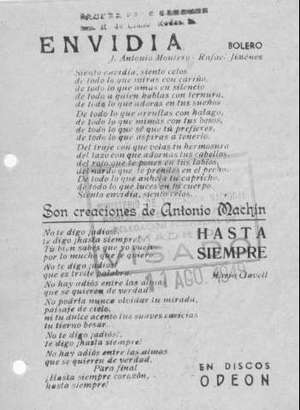 ENVIDIA
BOLERO
J. Antonio Montero - Rafael Jiménez
Siento envidia, siento celos
de todo lo que miras con cariño,
de todo lo que amas en silencio
de todo a quien hablas con ternura,
de todo lo que adoras en tus sueños
De todo lo que arrullas con halago,
de todo lo que mimas con tus besos,
de todo lo que sé que tú prefieres,
de todo lo que aspiras a tenerlo.
Del traje con que velas tu hermosura
del lazo con que adornas tus cabellos,
del que te pones en tus
del nardo que te prendes en el pecho.
De todo lo que anhela tu capricho
de todo lo que luces en tu cuerpo.
Siento envidia, siento celos.
Son creaciones de Antonio Machín
HASTA
SIEMPRE
María Clavell
No te digo ¡adiós!
te digo ¡hasta siempre!
Tú bien sabes que yo
por lo mucho que te quiero.
No te digo ¡adiós!
que es triste palabra.
No hay adiós entre las almas
que se quieren de verdad.
No podría nunca olvidar tu mirada,
paisaje de cielo,
ni tu dulce acento tus suaves caricias
tu tierno besar.
No te digo ¡adiós!,
te digo ¡hasta siempre!
No hay adiós entre las almas
que se quieren de verdad.
Para final
¡Hasta siempre corazón,
hasta siempre!
VISADO
11 AGO
EN DISCOS
ODEON